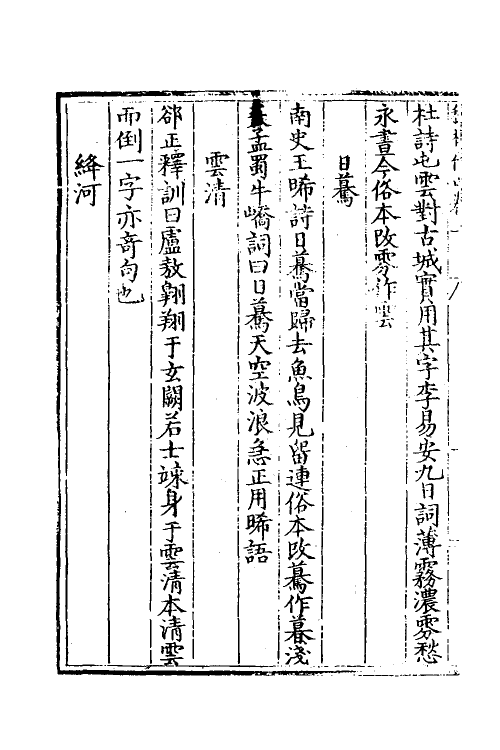 杜詩屯雲對古城實用其字李易安九日詞薄霧濃雰愁
永晝今俗本改雰作雲
日騫
南史王晞詩日騫當歸去魚鳥見留連俗本改騫作暮淺
矣孟蜀牛嶠詞曰日騫天空波浪急正用晞語
雲清
郤正釋訓曰盧敖翱翔于玄闕若士竦身于雲清本清雲
而倒一字亦竒句也
絳河